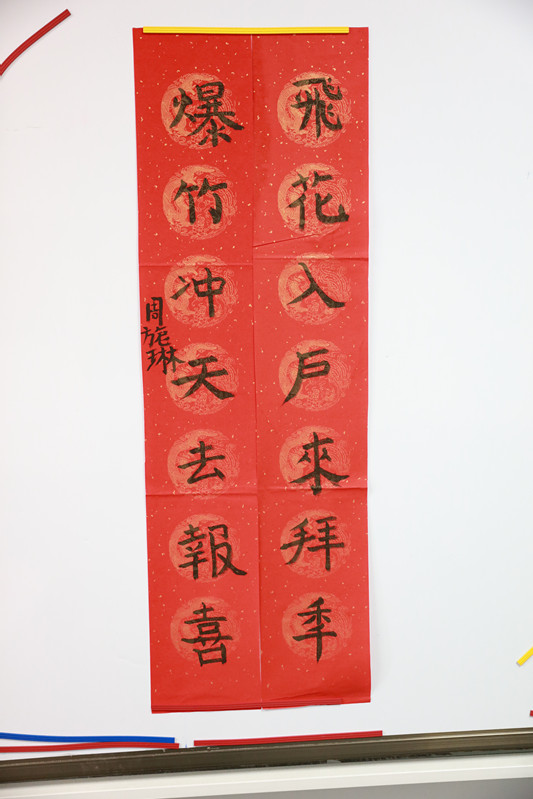 飛花入戶來拜年
爆竹冲天去報喜
周施琳